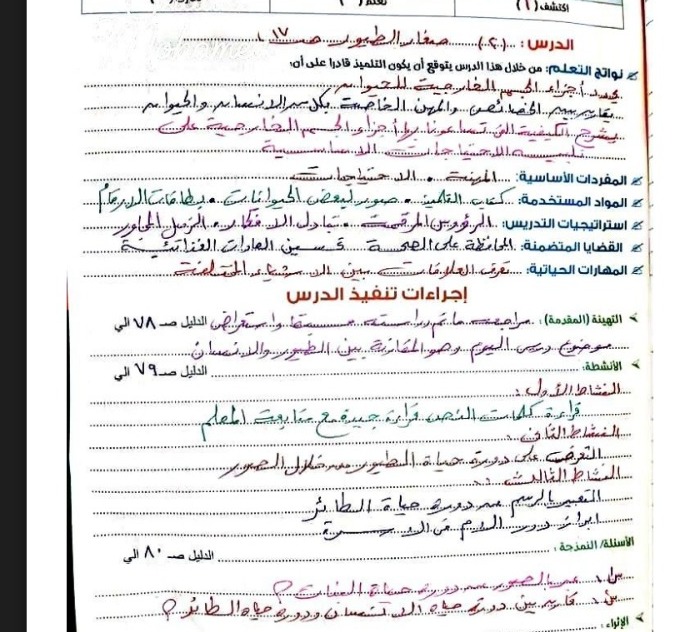 اكتشف (١)
الدرس: (٢) صغار الطيور صـ ١٧
نواتج التعلم: من خلال هذا الدرس يتوقع أن يكون التلميذ قادرا على أن:
يحدد أجزاء الجسم الخارجية للحيوان
يقارن بين الخصائص والمهن الخاصة بكل من الإنسان والحيوان
يشرح الكيفية التي تساعدنا بها أجزاء الجسم الخارجية على
تلبية الاحتياجات الأساسية
المفردات الأساسية: المهنة . الاحتياجات
المواد المستخدمة: كتاب التلميذ . صور لبعض الحيوانات . بطاقات الارقام
استراتيجيات التدريس: الرؤوس المرقمة . تبادل الافكار . الزميل المجاور
القضايا المتضمنة: المحافظة على الصحة تحسين العادات الغذائية
المهارات الحياتية: تعرف العلاقات بين الاشياء المختلفة
إجراءات تنفيذ الدرس
التهيئة (المقدمة): مراجعة ما تم دراسته مسبقا واستعراض الدليل صـ ٧٨ الي
موضوع درس اليوم وهو المقارنة بين الطيور والانسان
الأنشطة: الدليل صـ ٧٩ الي
النشاط الأول:
قراءة كلمات النص قراءة جيدة مع متابعة المعلم
النشاط الثانى:
التعرف على دورة حياة الطيور من خلال الصور
النشاط الثالث:
التعبير بالرسم عن دورة حياة الطائر
ابراز دور الام فى الاسرة
الأسئلة/ النمذجة: الدليل صـ ٨٠ الي
س١ عبر بالصور عن دورة حياة النبات؟
س٢ قارن بين دورة حياه الانسان ودورة حياه الطائر؟
الإثراء: